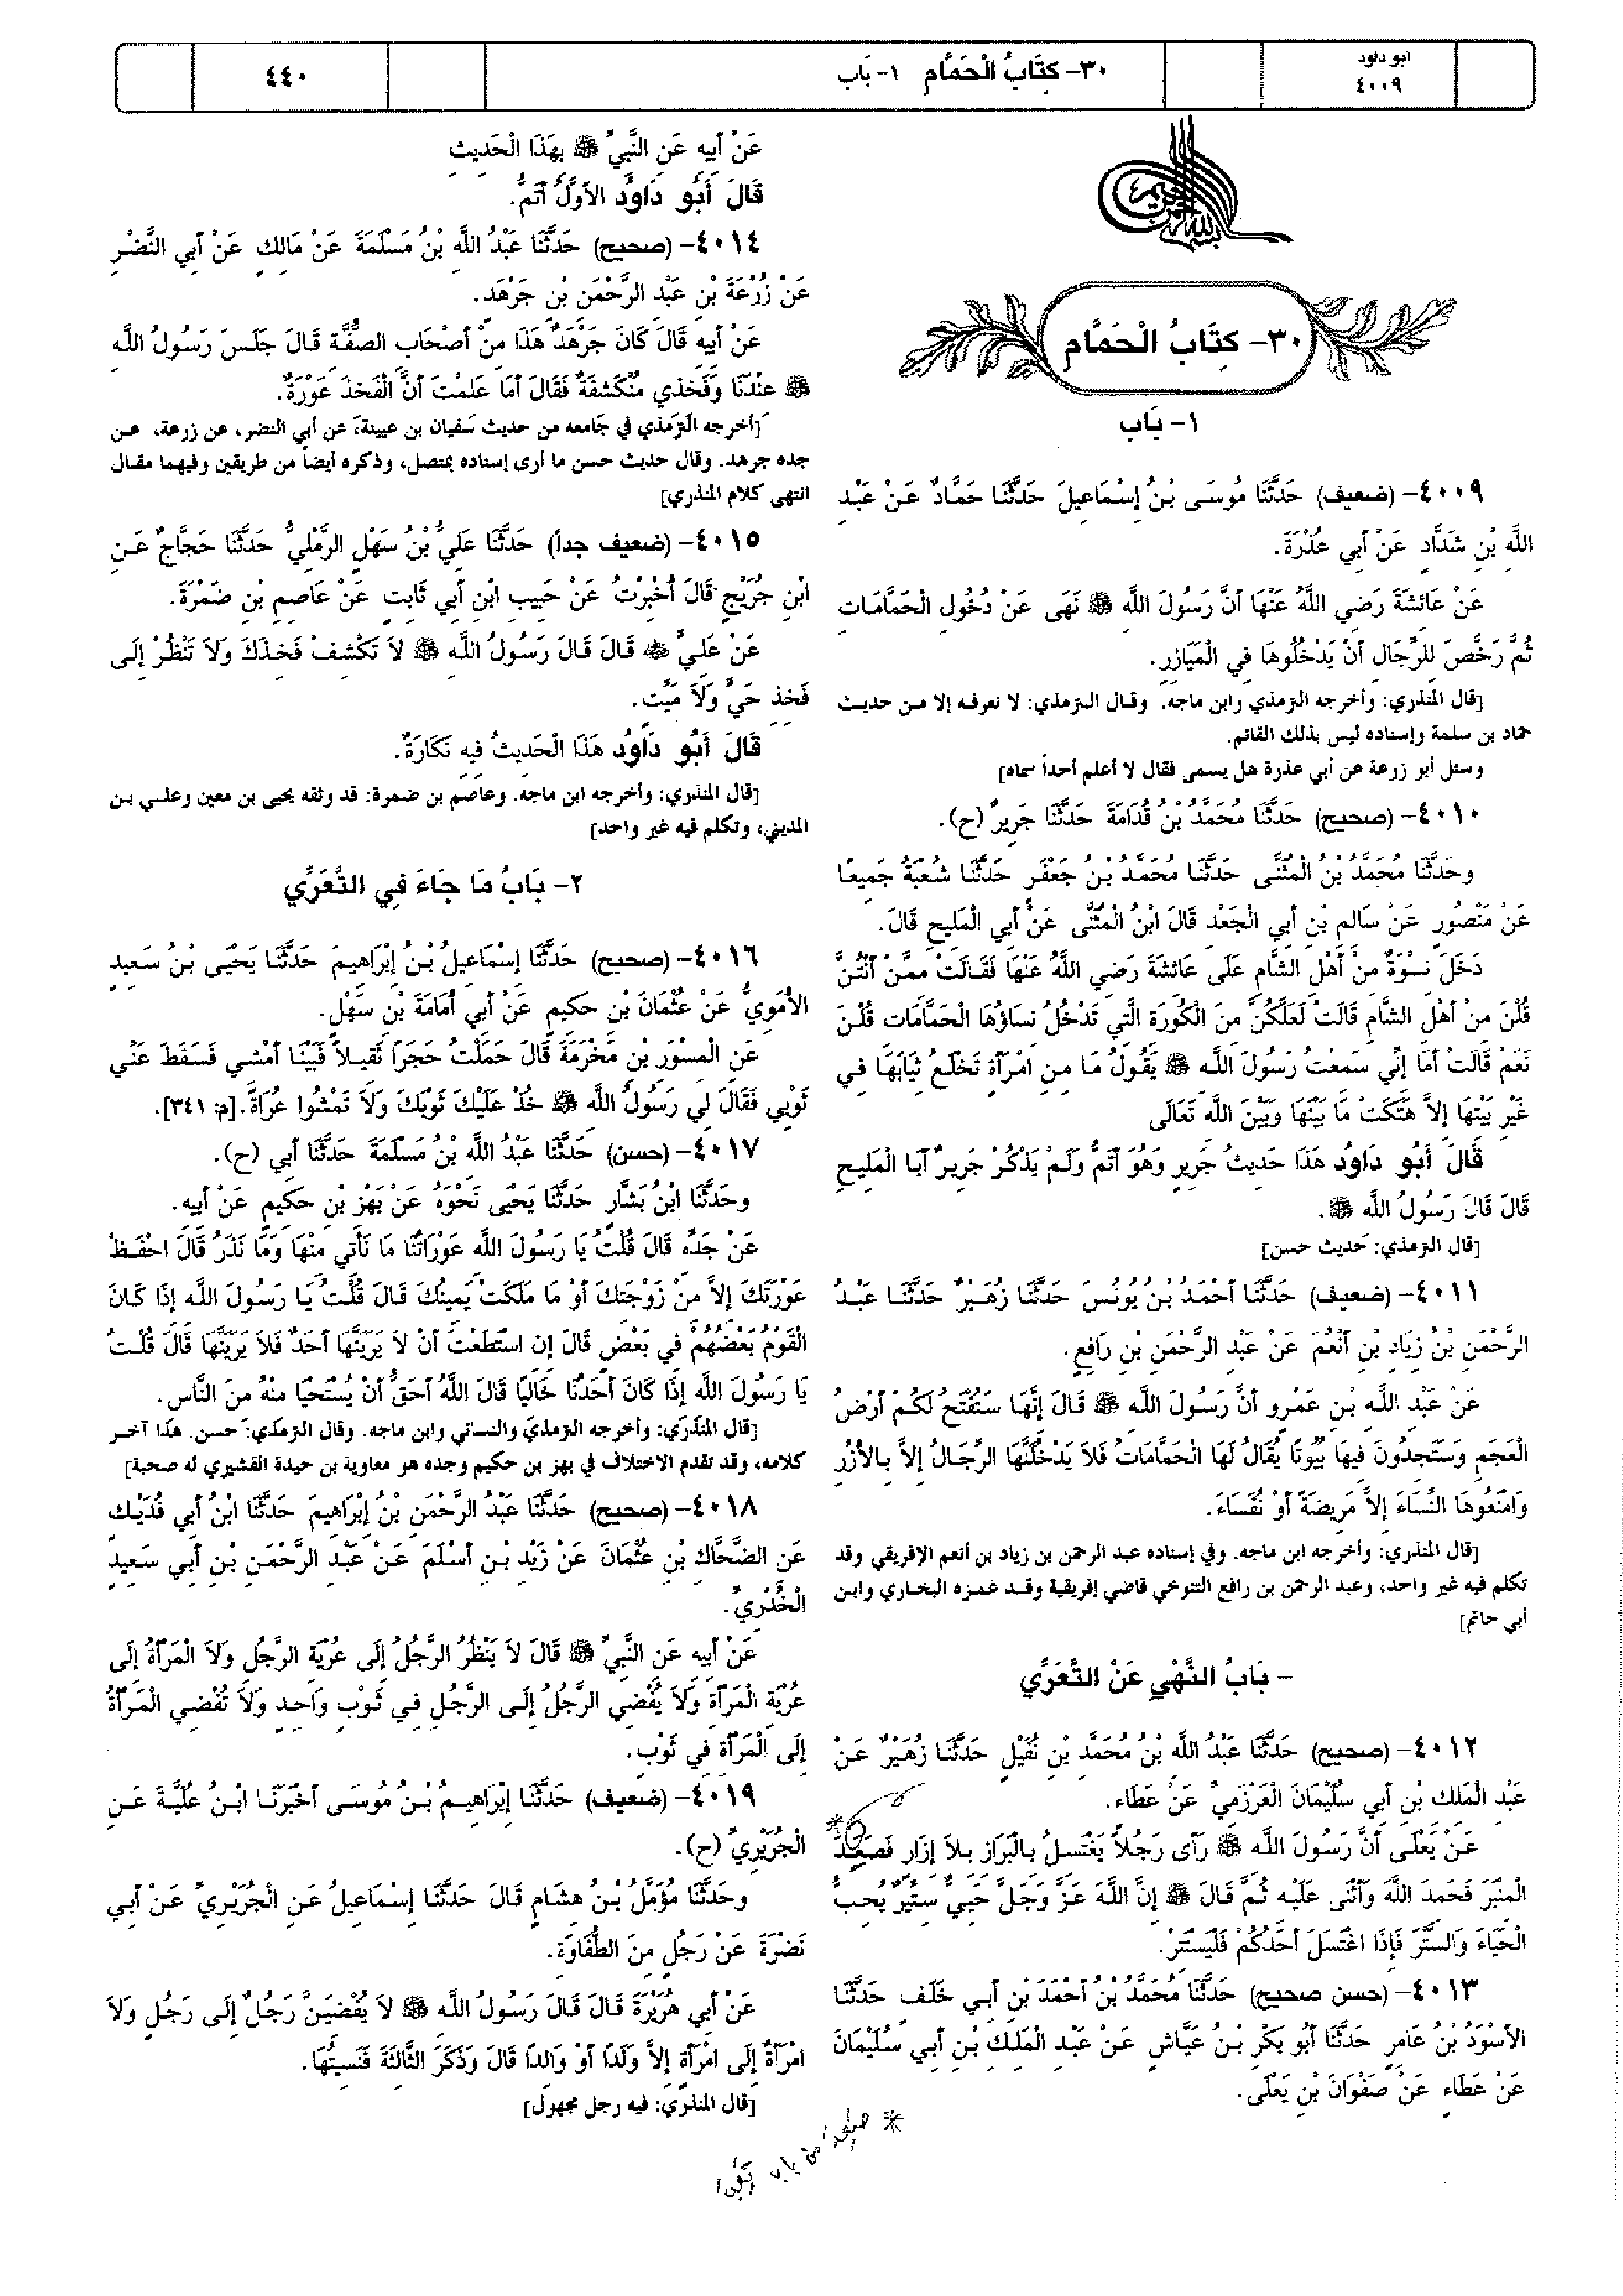 أبو داود
٤٠٠٩
٣٠- كِتَابُ الْحَمَّام ١- بَاب
٤٤٠
٣٠- كِتَابُ الْحَمَّام
١- بَاب
٤٠٠٩- (ضعيف) حَدَّثَنَا مُوسَى بْنُ إِسْمَاعِيلَ حَدَّثَنَا حَمَّادٌ عَنْ عَبْدِ
اللَّهِ بْنِ شَدَّادٍ عَنْ أَبِي عُذْرَةَ.
عَنْ عَائِشَةَ رَضِي اللَّهُ عَنْهَا أَنَّ رَسُولَ اللَّهِ ﷺ نَهَى عَنْ دُخُولِ الْحَمَّامَاتِ
ثُمَّ رَخَّصَ لِلرِّجَالِ أَنْ يَدْخُلُوهَا فِي الْمَيَازِرِ.
[قال المنذري: وأخرجه الترمذي وابن ماجه. وقال الترمذي: لا نعرفه إلا من حديث
حماد بن سلمة وإسناده ليس بذلك القائم.
وسئل أبو زرعة عن أبي عذرة هل يسمى فقال لا أعلم أحداً سماه]
٤٠١٠- (صحيح) حَدَّثَنَا مُحَمَّدُ بْنُ قُدَامَةَ حَدَّثَنَا جَرِيرٌ (ح).
وحَدَّثَنَا مُحَمَّدُ بْنُ الْمُثَنَّى حَدَّثَنَا مُحَمَّدُ بْنُ جَعْفَرٍ حَدَّثَنَا شُعْبَةُ جَمِيعًا
عَنْ مَنْصُورٍ عَنْ سَالِمِ بْنِ أَبِي الْجَعْدِ قَالَ ابْنُ الْمُثَنَّى عَنْ أَبِي الْمَلِيحِ قَالَ.
دَخَلَ نِسْوَةٌ مِنْ أَهْلِ الشَّامِ عَلَى عَائِشَةَ رَضِي اللَّهُ عَنْهَا فَقَالَتْ مِمَّنْ أَنْتُنَّ
قُلْنَ مِنْ أَهْلِ الشَّامِ قَالَتْ لَعَلَّكُنَّ مِنَ الْكُورَةِ الَّتِي تَدْخُلُ نِسَاؤُهَا الْحَمَّامَاتِ قُلْنَ
نَعَمْ قَالَتْ أَمَا إِنِّي سَمِعْتُ رَسُولَ اللَّهِ ﷺ يَقُولُ مَا مِنِ امْرَأَةٍ تَخْلَعُ ثِيَابَهَا فِي
غَيْرِ بَيْتِهَا إِلاَّ هَتَكَتْ مَا بَيْنَهَا وَبَيْنَ اللَّهِ تَعَالَى
قَالَ أَبُو دَاوُد هَذَا حَدِيثُ جَرِيرٍ وَهُوَ أَتَمُّ وَلَمْ يَذْكُرْ جَرِيرٌ أَبَا الْمَلِيحِ
قَالَ قَالَ رَسُولُ اللَّهِ ﷺ.
[قال الترمذي: حديث حسن]
٤٠١١- (ضعيف) حَدَّثَنَا أَحْمَدُ بْنُ يُونُسَ حَدَّثَنَا زُهَيْرٌ حَدَّثَنَا عَبْدُ
الرَّحْمَنِ بْنُ زِيَادِ بْنِ أَنْعُمَ عَنْ عَبْدِ الرَّحْمَنِ بْنِ رَافِعٍ.
عَنْ عَبْدِ اللَّهِ بْنِ عَمْرٍو أَنَّ رَسُولَ اللَّهِ ﷺ قَالَ إِنَّهَا سَتُفْتَحُ لَكُمْ أَرْضُ
الْعَجَمِ وَسَتَجِدُونَ فِيهَا بُيُوتًا يُقَالُ لَهَا الْحَمَّامَاتُ فَلاَ يَدْخُلَنَّهَا الرِّجَالُ إِلاَّ بِالأُزُرِ
وَامْنَعُوهَا النِّسَاءَ إِلاَّ مَرِيضَةً أَوْ نُفَسَاءَ.
[قال المنذري: وأخرجه ابن ماجه. وفي إسناده عبد الرحمن بن زياد بن أنعم الإفريقي وقد
تكلم فيه غير واحد، وعبد الرحمن بن رافع التنوخي قاضي إفريقية وقد غمزه البخاري وابن
أبي حاتم]
- بَابُ النَّهْيِ عَنْ التَّعَرِّي
٤٠١٢- (صحيح) حَدَّثَنَا عَبْدُ اللَّهِ بْنُ مُحَمَّدِ بْنِ نُفَيْلٍ حَدَّثَنَا زُهَيْرٌ عَنْ
عَبْدِ الْمَلِكِ بْنِ أَبِي سُلَيْمَانَ الْعَرْزَمِيِّ عَنْ عَطَاءٍ.
عَنْ يَعْلَى أَنَّ رَسُولَ اللَّهِ ﷺ رَأَى رَجُلاً يَغْتَسِلُ بِالْبَرَازِ بِلاَ إِزَارٍ فَصَعِدَ
الْمِنْبَرَ فَحَمِدَ اللَّهَ وَأَثْنَى عَلَيْهِ ثُمَّ قَالَ ﷺ إِنَّ اللَّهَ عَزَّ وَجَلَّ حَيِيٌّ سِتِّيرٌ يُحِبُّ
الْحَيَاءَ وَالسَّتْرَ فَإِذَا اغْتَسَلَ أَحَدُكُمْ فَلْيَسْتَتِرْ.
٤٠١٣- (حسن صحيح) حَدَّثَنَا مُحَمَّدُ بْنُ أَحْمَدَ بْنِ أَبِي خَلَفٍ حَدَّثَنَا
الأَسْوَدُ بْنُ عَامِرٍ حَدَّثَنَا أَبُو بَكْرِ بْنُ عَيَّاشٍ عَنْ عَبْدِ الْمَلِكِ بْنِ أَبِي سُلَيْمَانَ
عَنْ عَطَاءٍ عَنْ صَفْوَانَ بْنِ يَعْلَى.
عَنْ أَبِيهِ عَنِ النَّبِيِّ ﷺ بِهَذَا الْحَدِيثِ
قَالَ أَبُو دَاوُد الأَوَّلُ أَتَمُّ.
٤٠١٤- (صحيح) حَدَّثَنَا عَبْدُ اللَّهِ بْنُ مَسْلَمَةَ عَنْ مَالِكٍ عَنْ أَبِي النَّضْرِ
عَنْ زُرْعَةَ بْنِ عَبْدِ الرَّحْمَنِ بْنِ جَرْهَدٍ.
عَنْ أَبِيهِ قَالَ كَانَ جَرْهَدٌ هَذَا مِنْ أَصْحَابِ الصُّفَّةِ قَالَ جَلَسَ رَسُولُ اللَّهِ
ﷺ عِنْدَنَا وَفَخِذِي مُنْكَشِفَةٌ فَقَالَ أَمَا عَلِمْتَ أَنَّ الْفَخِذَ عَوْرَةٌ.
[أخرجه الترمذي في جامعه من حديث سفيان بن عيينة، عن أبي النضر، عن زرعة، عن
جده جرهد. وقال حديث حسن ما أرى إسناده بمتصل، وذكره أيضاً من طريقين وفيهما مقال
انتهى كلام المنذري]
٤٠١٥- (ضعيف جداً) حَدَّثَنَا عَلِيُّ بْنُ سَهْلٍ الرَّمْلِيُّ حَدَّثَنَا حَجَّاجٌ عَنِ
ابْنِ جُرَيْجٍ قَالَ أُخْبِرْتُ عَنْ حَبِيبِ ابْنِ أَبِي ثَابِتٍ عَنْ عَاصِمِ بْنِ ضَمْرَةَ.
عَنْ عَلِيٍّ ﷺ قَالَ قَالَ رَسُولُ اللَّهِ ﷺ لاَ تَكْشِفْ فَخِذَكَ وَلاَ تَنْظُرْ إِلَى
فَخِذِ حَيٍّ وَلاَ مَيِّتٍ.
قَالَ أَبُو دَاوُد هَذَا الْحَدِيثُ فِيهِ نَكَارَةٌ.
[قال المنذري: وأخرجه ابن ماجه. وعاصم بن ضمرة: قد وثقه يحيى بن معين وعلي بن
المديني، وتكلم فيه غير واحد]
٢- بَابُ مَا جَاءَ فِي التَّعَرِّي
٤٠١٦- (صحيح) حَدَّثَنَا إِسْمَاعِيلُ بْنُ إِبْرَاهِيمَ حَدَّثَنَا يَحْيَى بْنُ سَعِيدٍ
الأُمَوِيُّ عَنْ عُثْمَانَ بْنِ حَكِيمٍ عَنْ أَبِي أُمَامَةَ بْنِ سَهْلٍ.
عَنِ الْمِسْوَرِ بْنِ مَخْرَمَةَ قَالَ حَمَلْتُ حَجَرًا ثَقِيلاً فَبَيْنَا أَمْشِي فَسَقَطَ عَنِّي
ثَوْبِي فَقَالَ لِي رَسُولُ اللَّهِ ﷺ خُذْ عَلَيْكَ ثَوْبَكَ وَلاَ تَمْشُوا عُرَاةً.[م: ٣٤١].
٤٠١٧- (حسن) حَدَّثَنَا عَبْدُ اللَّهِ بْنُ مَسْلَمَةَ حَدَّثَنَا أَبِي (ح).
وحَدَّثَنَا ابْنُ بَشَّارٍ حَدَّثَنَا يَحْيَى نَحْوَهُ عَنْ بَهْزِ بْنِ حَكِيمٍ عَنْ أَبِيهِ.
عَنْ جَدِّهِ قَالَ قُلْتُ يَا رَسُولَ اللَّهِ عَوْرَاتُنَا مَا نَأْتِي مِنْهَا وَمَا نَذَرُ قَالَ احْفَظْ
عَوْرَتَكَ إِلاَّ مِنْ زَوْجَتِكَ أَوْ مَا مَلَكَتْ يَمِينُكَ قَالَ قُلْتُ يَا رَسُولَ اللَّهِ إِذَا كَانَ
الْقَوْمُ بَعْضُهُمْ فِي بَعْضٍ قَالَ إِنِ اسْتَطَعْتَ أَنْ لاَ يَرَيَنَّهَا أَحَدٌ فَلاَ يَرَيَنَّهَا قَالَ قُلْتُ
يَا رَسُولَ اللَّهِ إِذَا كَانَ أَحَدُنَا خَالِيًا قَالَ اللَّهُ أَحَقُّ أَنْ يُسْتَحْيَا مِنْهُ مِنَ النَّاسِ.
[قال المنذري: وأخرجه الترمذي والنسائي وابن ماجه. وقال الترمذي: حسن. هذا آخر
كلامه، وقد تقدم الاختلاف في بهز بن حكيم وجده هو معاوية بن حيدة القشيري له صحبة]
٤٠١٨- (صحيح) حَدَّثَنَا عَبْدُ الرَّحْمَنِ بْنُ إِبْرَاهِيمَ حَدَّثَنَا ابْنُ أَبِي فُدَيْكٍ
عَنِ الضَّحَّاكِ بْنِ عُثْمَانَ عَنْ زَيْدِ بْنِ أَسْلَمَ عَنْ عَبْدِ الرَّحْمَنِ بْنِ أَبِي سَعِيدٍ
الْخُدْرِيِّ.
عَنْ أَبِيهِ عَنِ النَّبِيِّ ﷺ قَالَ لاَ يَنْظُرُ الرَّجُلُ إِلَى عُرْيَةِ الرَّجُلِ وَلاَ الْمَرْأَةُ إِلَى
عُرْيَةِ الْمَرْأَةِ وَلاَ يُفْضِي الرَّجُلُ إِلَى الرَّجُلِ فِي ثَوْبٍ وَاحِدٍ وَلاَ تُفْضِي الْمَرْأَةُ
إِلَى الْمَرْأَةِ فِي ثَوْبٍ.
٤٠١٩- (ضعيف) حَدَّثَنَا إِبْرَاهِيمُ بْنُ مُوسَى أَخْبَرَنَا ابْنُ عُلَيَّةَ عَنِ
الْجُرَيْرِيِّ (ح).
وحَدَّثَنَا مُؤَمَّلُ بْنُ هِشَامٍ قَالَ حَدَّثَنَا إِسْمَاعِيلُ عَنِ الْجُرَيْرِيِّ عَنْ أَبِي
نَضْرَةَ عَنْ رَجُلٍ مِنَ الطُّفَاوَةِ.
عَنْ أَبِي هُرَيْرَةَ قَالَ قَالَ رَسُولُ اللَّهِ ﷺ لاَ يُفْضِيَنَّ رَجُلٌ إِلَى رَجُلٍ وَلاَ
امْرَأَةٌ إِلَى امْرَأَةٍ إِلاَّ وَلَدًا أَوْ وَالِدًا قَالَ وَذَكَرَ الثَّالِثَةَ فَنَسِيتُهَا.
[قال المنذري: فيه رجل مجهول]